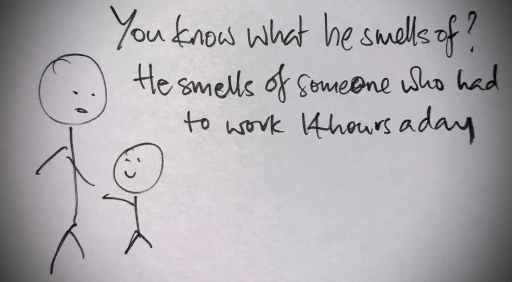 You know what he smells of?
He smells of someone who had
to work 14 hours a day